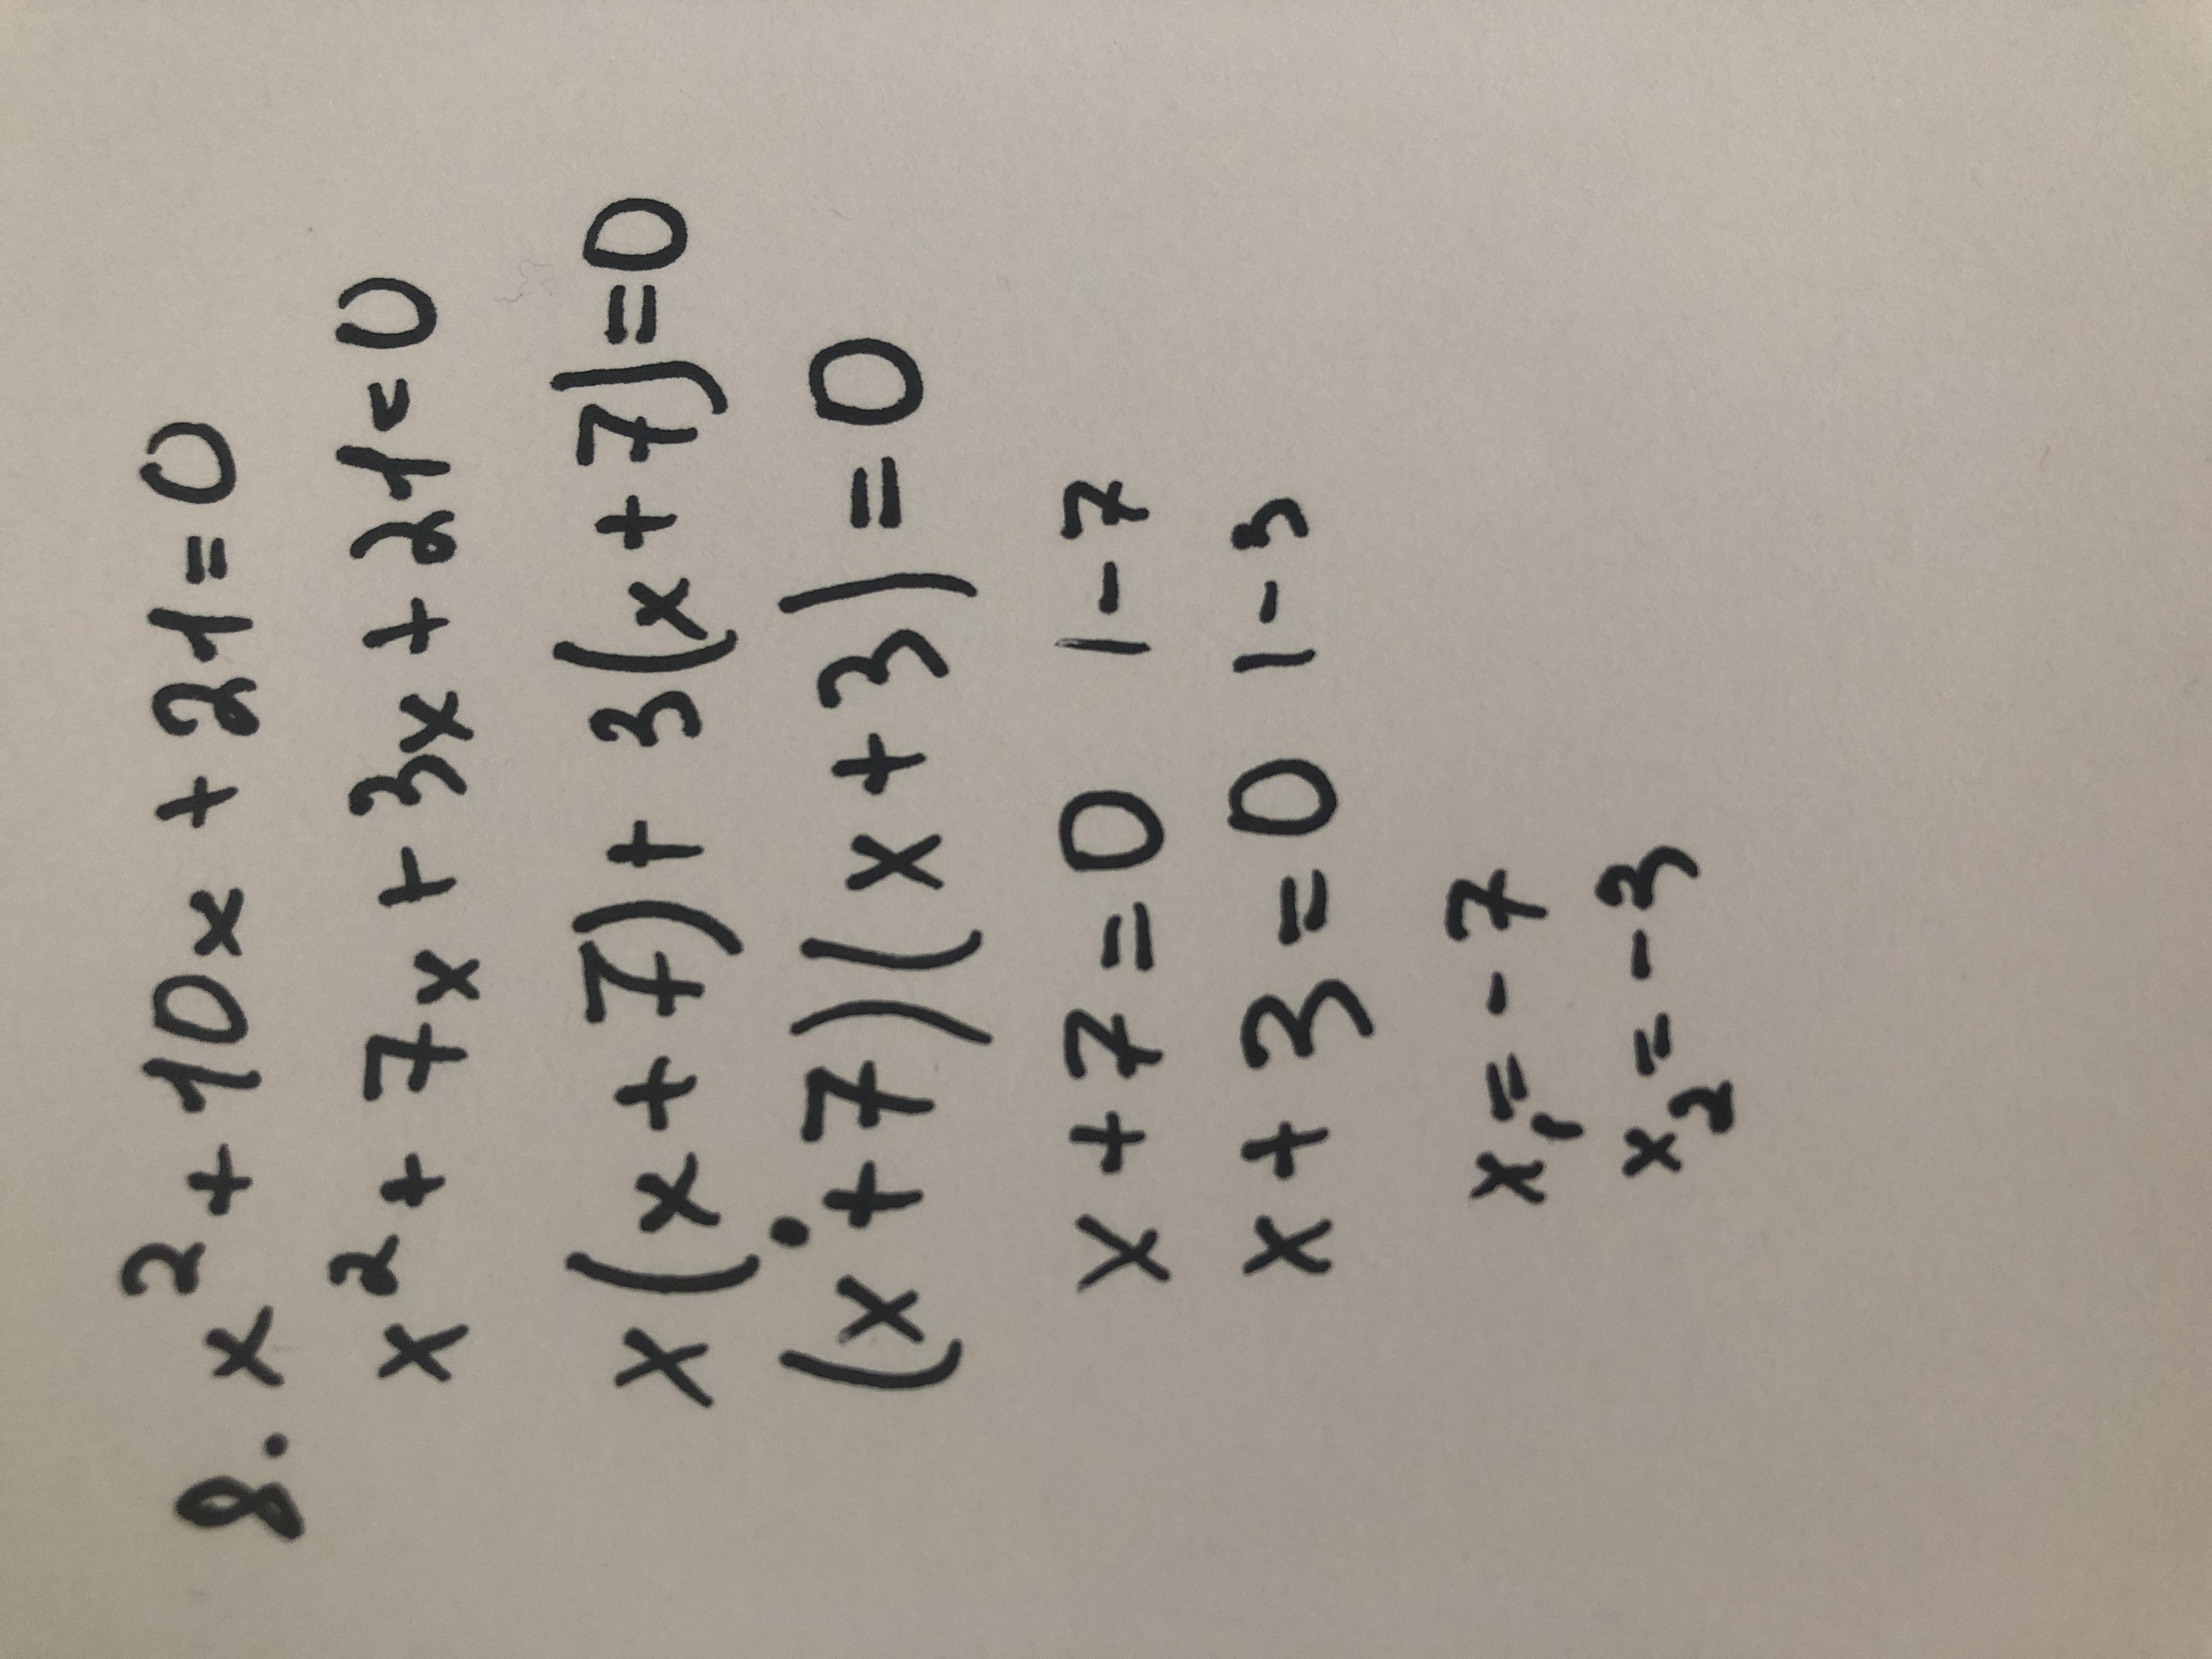 8. x² + 10x + 21 = 0
x² + 7x + 3x + 21 = 0
x(x + 7) + 3(x + 7) = 0
(x + 7)(x + 3) = 0
x + 7 = 0 | - 7
x + 3 = 0 | - 3
x₁ = - 7
x₂ = - 3